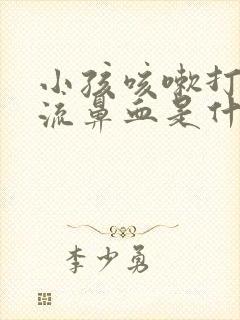 小孩咳嗽打
流鼻血是什
李少勇